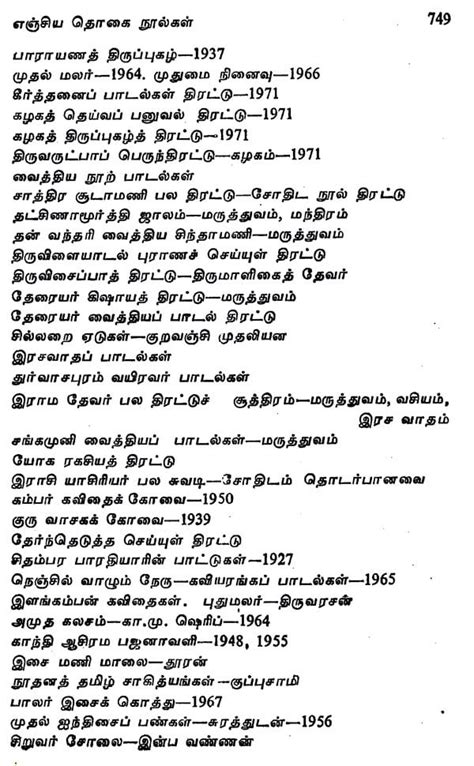 எஞ்சிய தொகை நூல்கள் 749
பாராயணத் திருப்புகழ்—1937
முதல் மலர்—1964. முதுமை நினைவு—1966
கீர்த்தனைப் பாடல்கள் திரட்டு—1971
கழகத் தெய்வப் பனுவல் திரட்டு—1971
கழகத் திருப்புகழ்த் திரட்டு—1971
திருவருட்பாப் பெருந்திரட்டு—கழகம்—1971
வைத்திய நூற் பாடல்கள்
சாத்திர சூடாமணி பல திரட்டு—சோதிட நூல் திரட்டு
தட்சிணாமூர்த்தி ஜாலம்—மருத்துவம், மந்திரம்
தன் வந்தரி வைத்திய சிந்தாமணி—மருத்துவம்
திருவிளையாடல் புராணச் செய்யுள் திரட்டு
திருவிசைப்பாத் திரட்டு—திருமாளிகைத் தேவர்
தேரையர் கிஷாயத் திரட்டு—மருத்துவம்
தேரையர் வைத்தியப் பாடல் திரட்டு
சில்லறை ஏடுகள்—குறவஞ்சி முதலியன
இரசவாதப் பாடல்கள்
துர்வாசபுரம் வயிரவர் பாடல்கள்
இராம தேவர் பல திரட்டுச் சூத்திரம்—மருத்துவம், வசியம்,
இரச வாதம்
சங்கமுனி வைத்தியப் பாடல்கள்—மருத்துவம்
யோக ரகசியத் திரட்டு
இராசி யாசிரியர் பல சுவடி—சோதிடம் தொடர்பானவை
கம்பர் கவிதைக் கோவை—1950
குரு வாசகக் கோவை—1939
தேர்ந்தெடுத்த செய்யுள் திரட்டு
சிதம்பர பாரதியாரின் பாட்டுகள்—1927
நெஞ்சில் வாழும் நேரு—கவியரங்கப் பாடல்கள்—1965
இளங்கம்பன் கவிதைகள். புதுமலர்—திருவரசன்
அமுத கலசம்—கா.மு. ஷெரிப்—1964
காந்தி ஆசிரம பஜனாவளி—1948, 1955
இசை மணி மாலை—தூரன்
நூதனத் தமிழ் சாகித்யங்கள்—குப்புசாமி
பாலர் இசைக் கொத்து—1967
முதல் ஐந்திசைப் பண்கள்—சுரத்துடன்—1956
சிறுவர் சோலை—இன்ப வண்ணன்